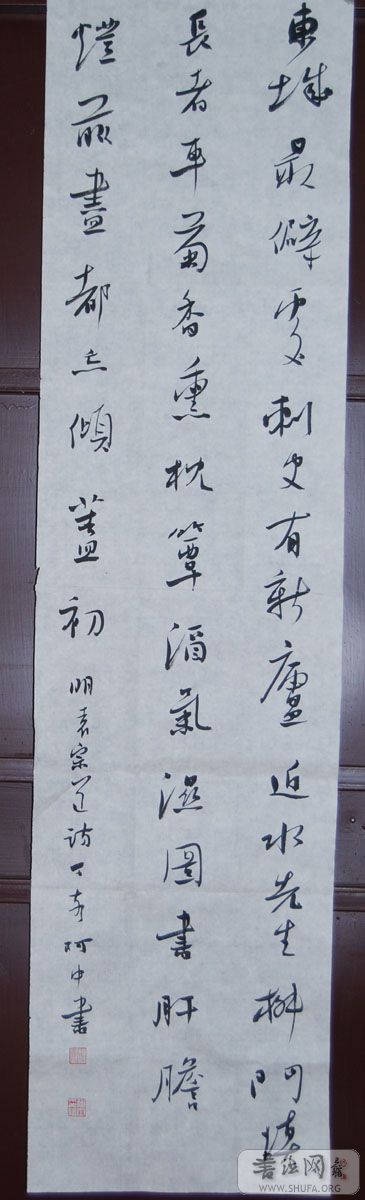 東城最僻處刺史有新廬近水先生柳門填
長者車菊香熏枕簟氣濕圖書肝膽
燈前盡都忘傾蓋初
明袁宗道詩丁亥阿中書
書法网
WWW.SHUFA.ORG